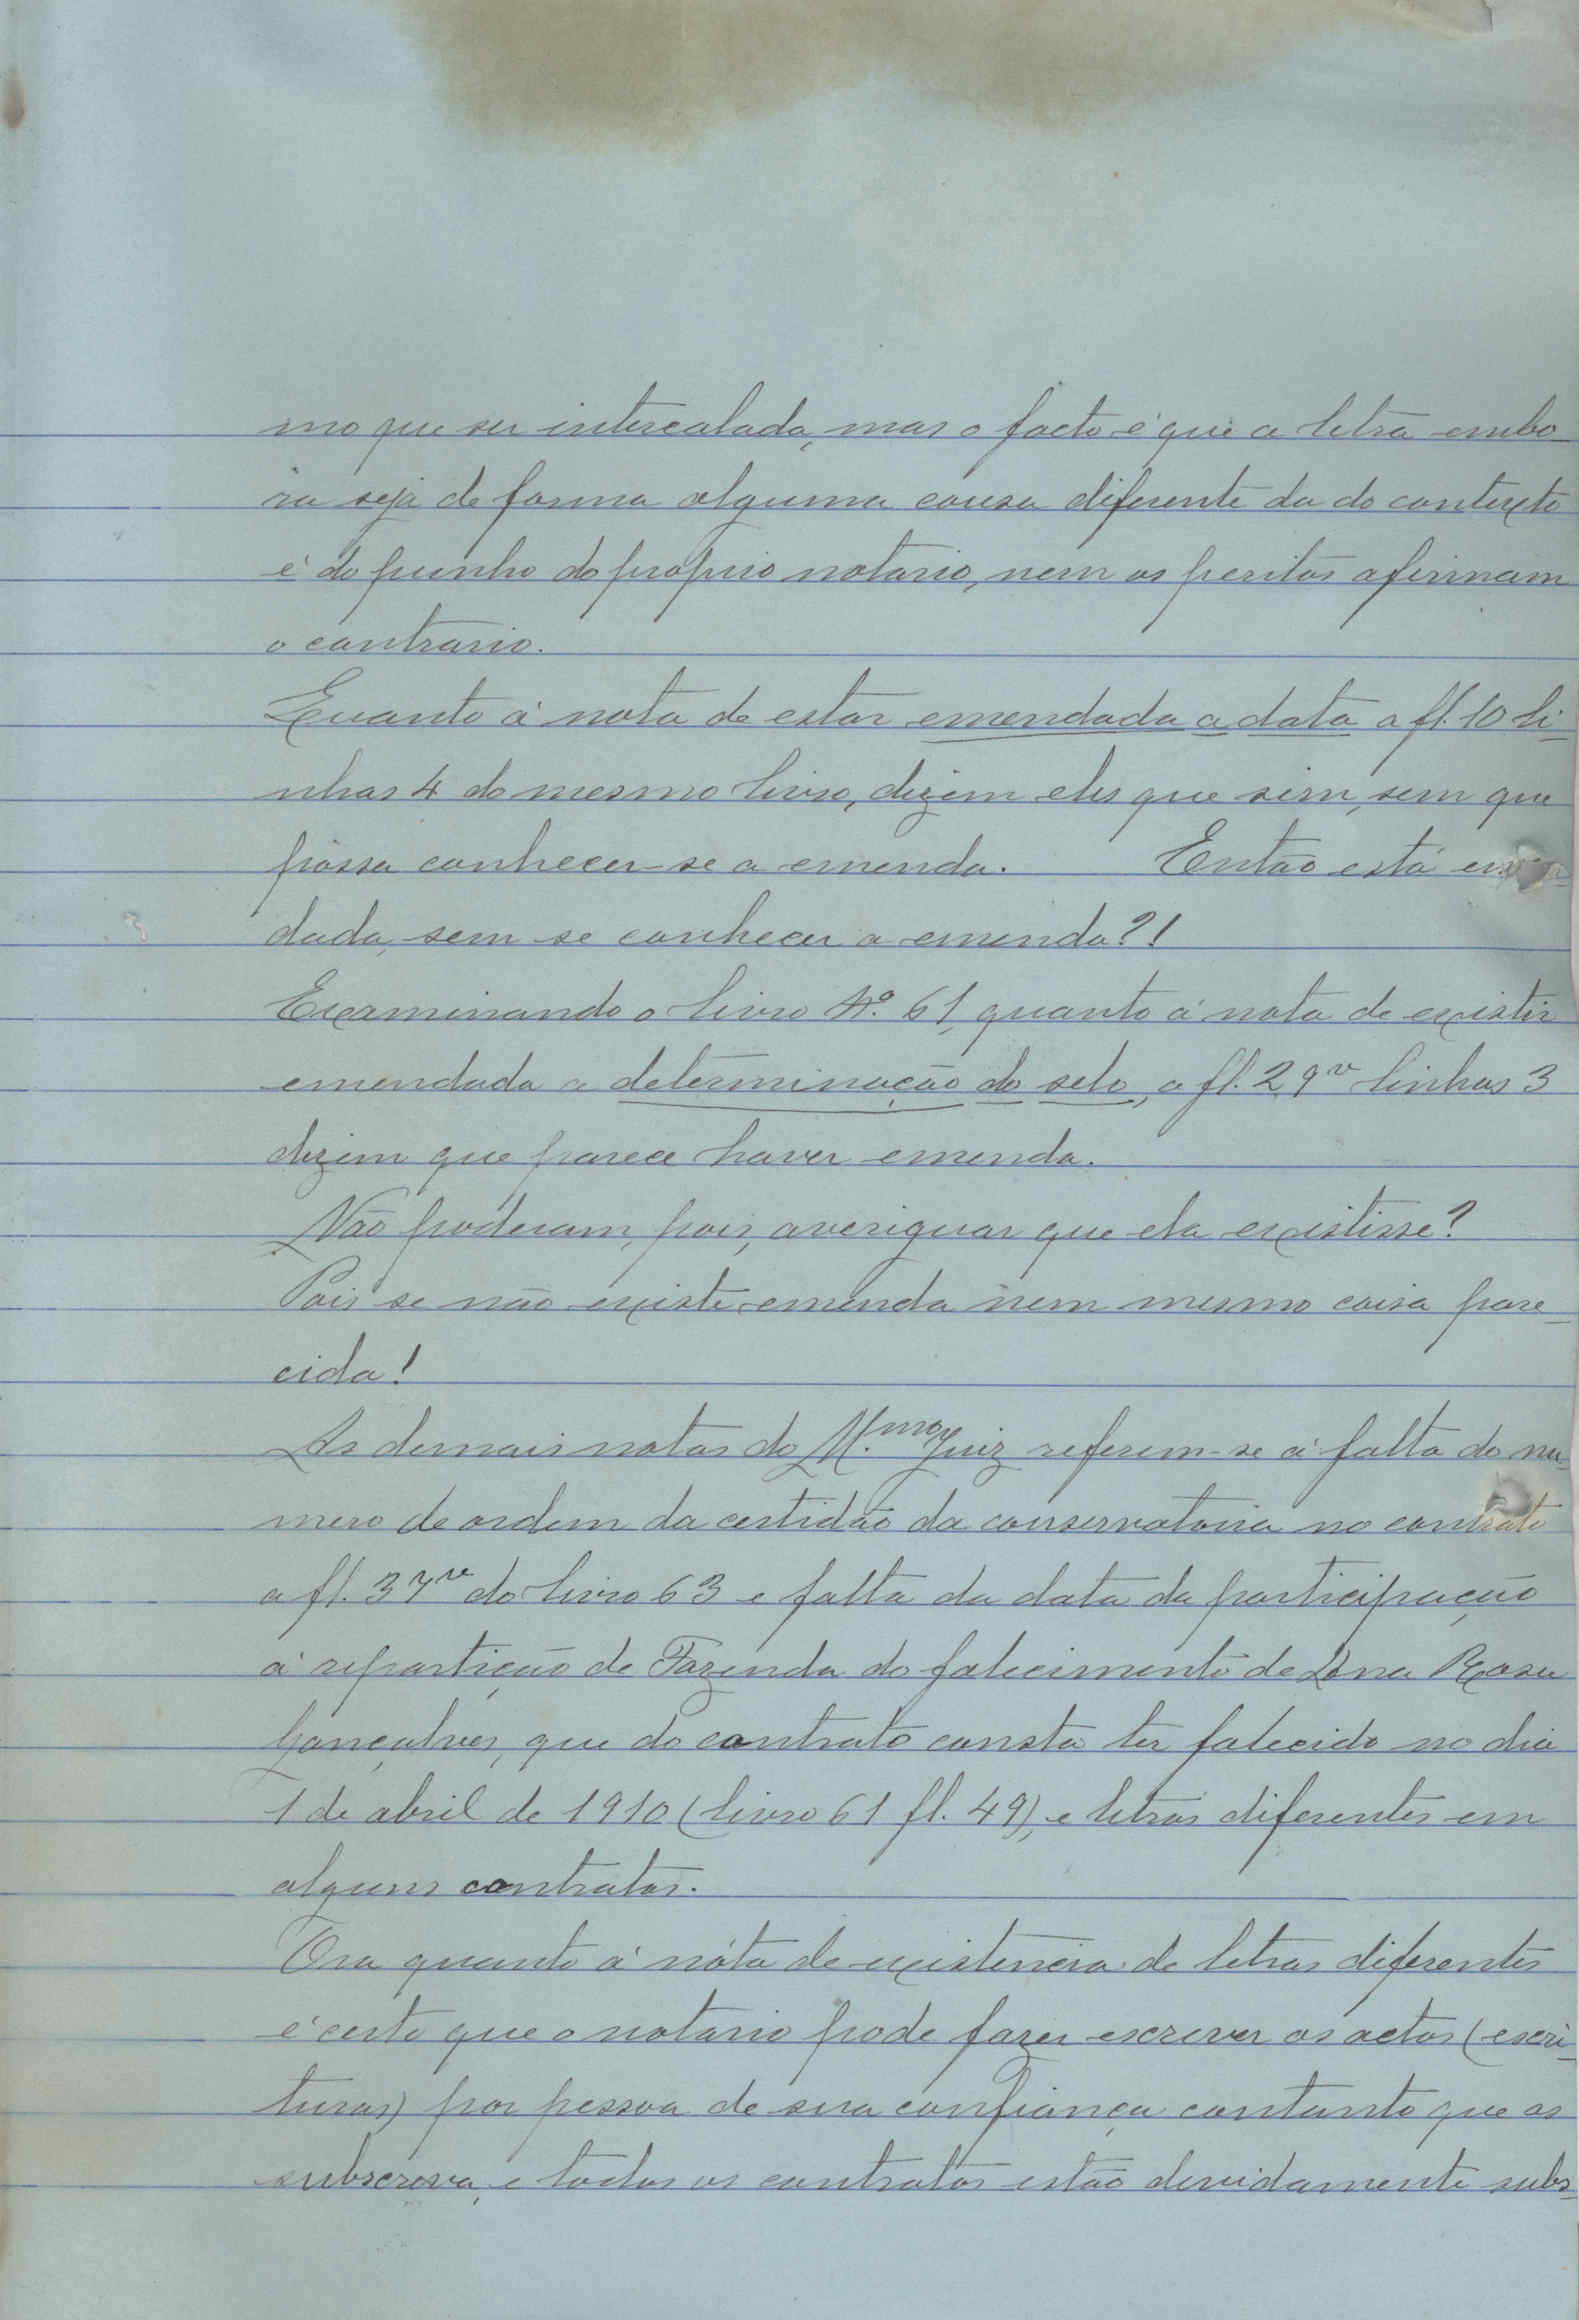 mo que ser intercalada, mas o facto é que a letra embo-
ra seja de forma alguma cousa diferente da do contexto
é do punho do proprio notario, nem os peritos afirmam
o contrario.
Quanto á nota de estar emendada a data a fl. 10 li-
nhas 4 do mesmo livro, dizem eles que sim, sem que
póssa conhecer-se a emenda. Então está emen-
dada, sem se conhecer a emenda?!
Examinando o livro Nº. 61, quanto á nota de existir
emendada a determinação do selo, a fl. 29v linhas 3
dizem que parece haver emenda.
Não poderam, pois, averiguar que ela existisse?
Pois se não existe emenda nem mesmo coisa pare-
cida!
As demais notas do M.mo Juiz referem-se á falta do nu-
mero de ordem da certidão da conservatoria no contrato
a fl. 37v do livro 63 e falta da data da participação
á repartição de Fazenda do falecimento de Rosa
Gonçalves, que do contrato consta ter falecido no dia
1 de abril de 1910 (livro 61 fl. 49), e letras diferentes em
alguns contratos.
Ora quanto á nóta de existencia de letras diferentes
é certo que o notario pode fazer escrever os actos (escri-
turas) por pessoa de sua confiança contanto que os
subscreva, e todos os contratos estão devidamente subs-